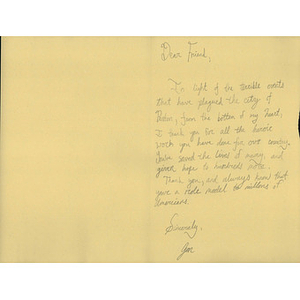 Dear Friend,
In light of the terrible events
that have plagued the city of
Boston, from the bottom of my heart,
I thank you for all the heroic
work you have done for our country.
You've saved the lives of many, and
given hope to hundreds more.
Thank you, and always know that
you're a role model to millions of
Americans.
Sincerely,